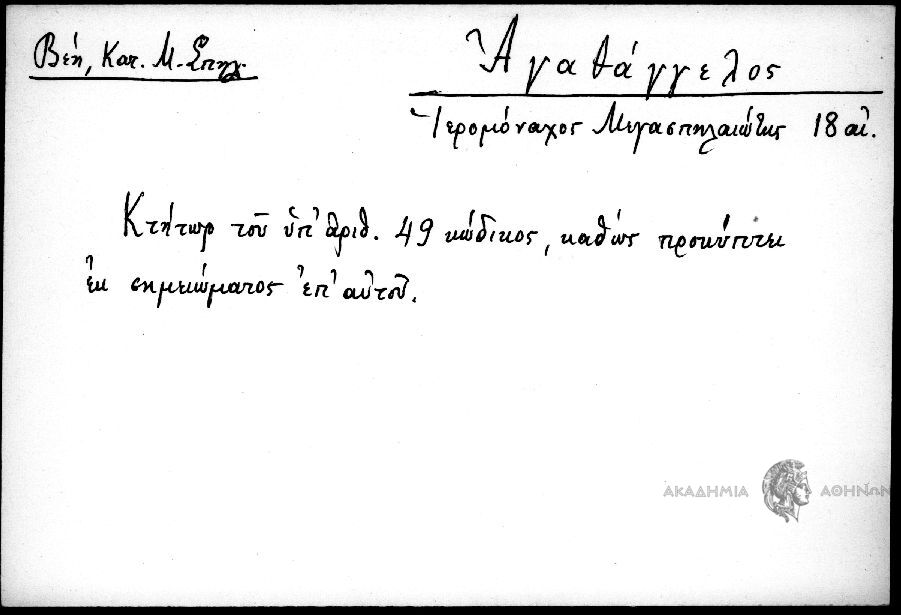 Βέη, Κατ. Μ. Σπηλ.
Ἀγαθάγγελος
Ἱερομόναχος Μεγασπηλαιώτης 18 αἰ.
Κτήτωρ τοῦ ὑπ' ἀριθ. 49 κώδικος, καθὼς προκύπτει
ἐκ σημειώματος ἐπ' αὐτοῦ.
ΑΚΑΔΗΜΙΑ ΑΘΗΝΩΝ